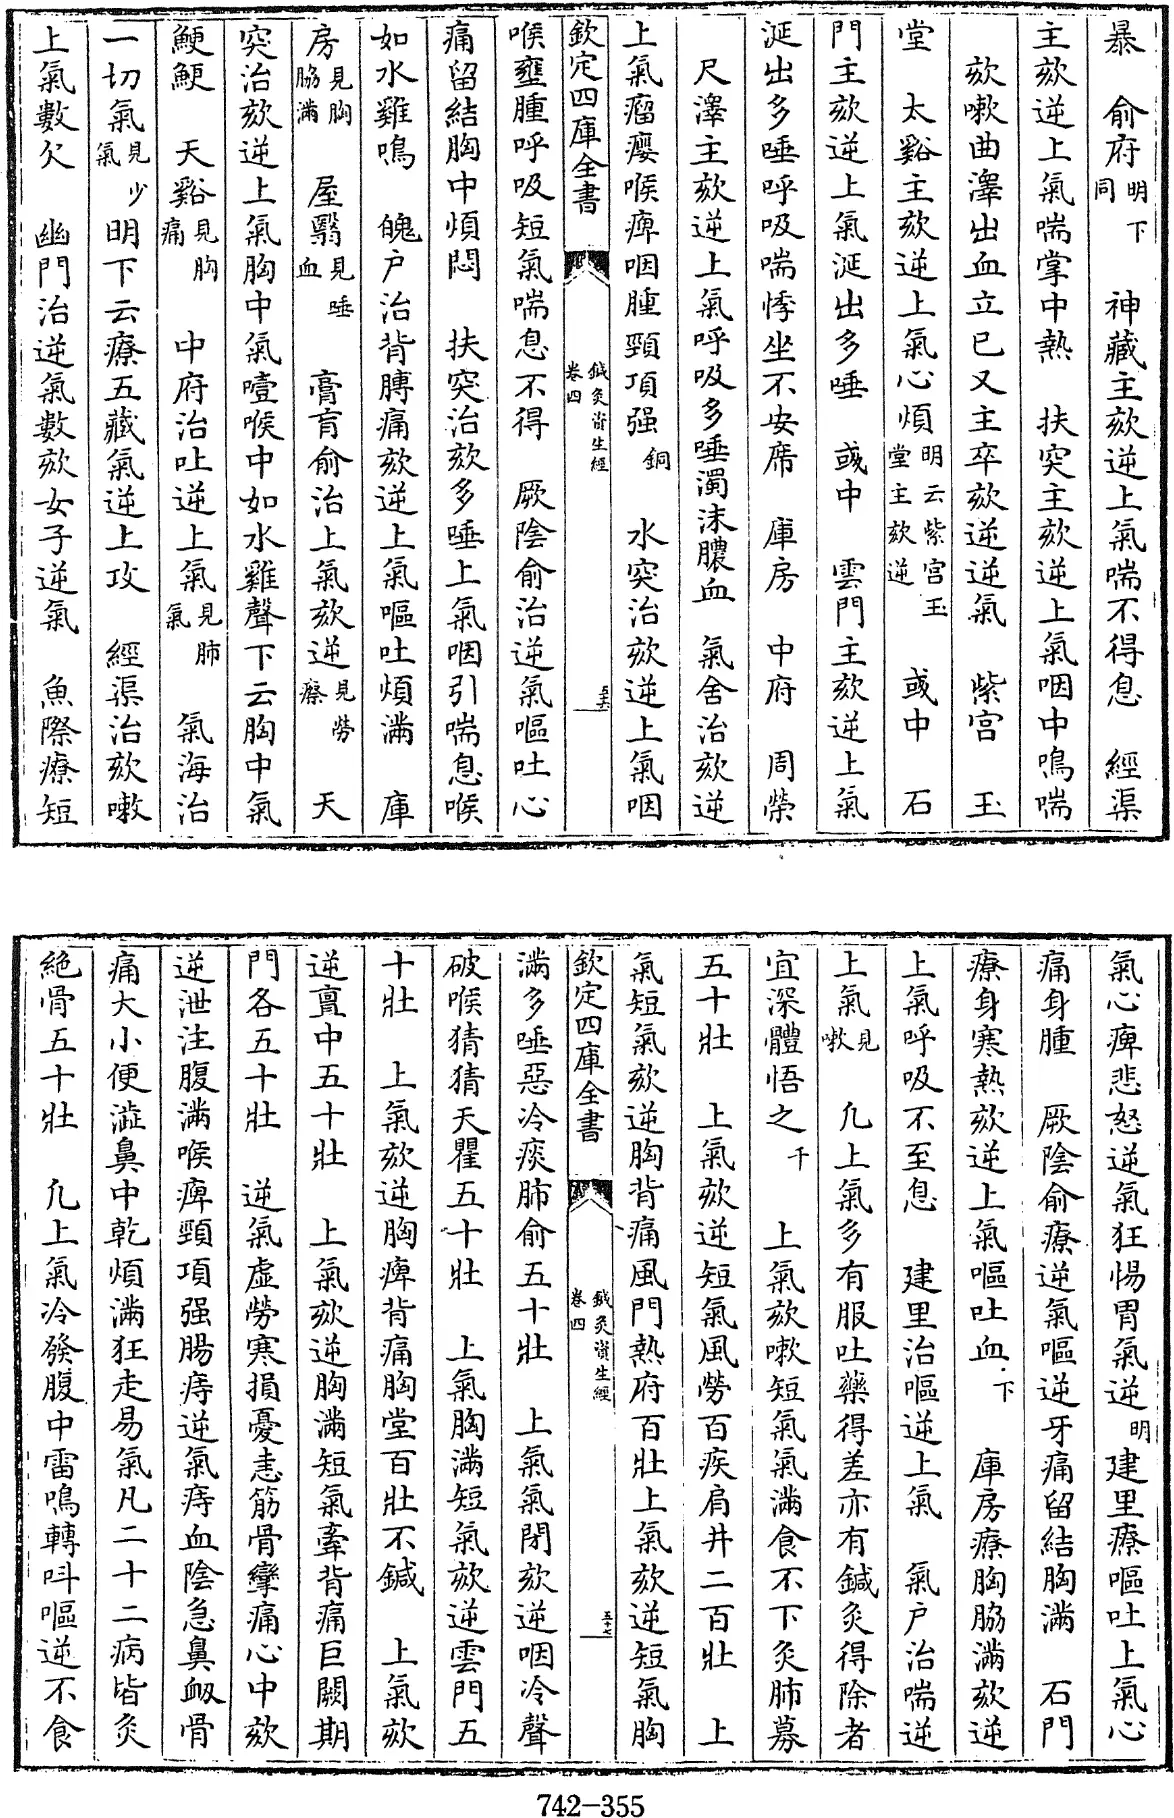 暴　俞府明下同　神藏主欬逆上氣喘不得息　經渠
主欬逆上氣喘掌中熱　扶突主欬逆上氣咽中鳴喘
欬嗽曲澤出血立已又主卒欬逆逆氣　紫宫　玉
堂　太谿主欬逆上氣心煩明云紫宫玉堂主欬逆　彧中　石
門主欬逆上氣涎出多唾　彧中　雲門主欬逆上氣
涎出多唾呼吸喘悸坐不安席　庫房　中府　周榮
尺澤主欬逆上氣呼吸多唾濁沫膿血　氣舍治欬逆
上氣瘤癭喉痺咽腫頸項强銅　水突治欬逆上氣咽
欽定四庫全書　鍼灸資生經卷四　五十六
喉壅腫呼吸短氣喘息不得　厥陰俞治逆氣嘔吐心
痛留結胸中煩悶　扶突治欬多唾上氣咽引喘息喉
如水雞鳴　魄户治背膊痛欬逆上氣嘔吐煩滿　庫
房見胸脇滿　屋翳見唾血　膏肓俞治上氣欬逆見勞瘵　天
突治欬逆上氣胸中氣噎喉中如水雞聲下云胸中氣
鯁鯁　天谿見胸痛　中府治吐逆上氣見肺氣　氣海治
一切氣見少氣　明下云療五藏氣逆上攻　經渠治欬嗽
上氣數欠　幽門治逆氣數欬女子逆氣　魚際療短
氣心痺悲怒逆氣狂惕胃氣逆明　建里療嘔吐上氣心
痛身腫　厥陰俞療逆氣嘔逆牙痛留結胸滿　石門
療身寒熱欬逆上氣嘔吐血下　庫房療胸脇滿欬逆
上氣呼吸不至息　建里治嘔逆上氣　氣户治喘逆
上氣見嗽　凢上氣多有服吐藥得差亦有鍼灸得除者
宜深體悟之千　上氣欬嗽短氣氣滿食不下灸肺募
五十壯　上氣欬逆短氣風勞百疾肩井二百壯　上
氣短氣欬逆胸背痛風門熱府百壯上氣欬逆短氣胸
欽定四庫全書　鍼灸資生經卷四　五十七
滿多唾惡冷痰肺俞五十壯　上氣氣閉欬逆咽冷聲
破喉猜猜天瞿五十壯　上氣胸滿短氣欬逆雲門五
十壯　上氣欬逆胸痺背痛胸堂百壯不鍼　上氣欬
逆亶中五十壯　上氣欬逆胸滿短氣牽背痛巨闕期
門各五十壯　逆氣虛勞寒損憂恚筋骨攣痛心中欬
逆泄注腹滿喉痺頸項强腸痔逆氣痔血陰急鼻衂骨
痛大小便澁鼻中乾煩滿狂走易氣凡二十二病皆灸
絶骨五十壯　凢上氣冷發腹中雷鳴轉呌嘔逆不食
742-355